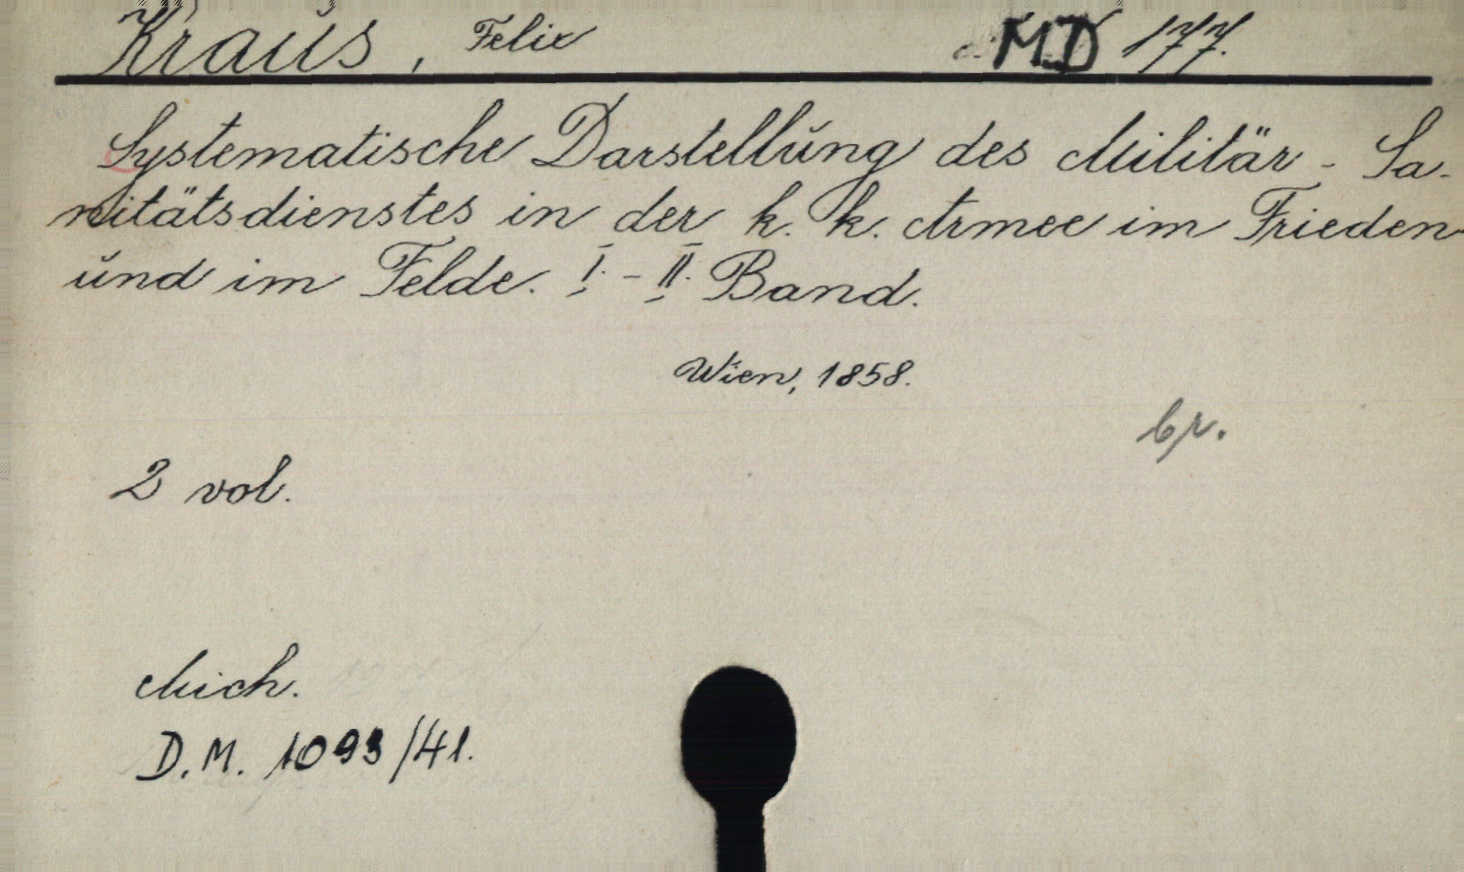 Kraus, Felix MD 177.
Systematische Darstellung des Militär-Sa-
nitätsdienstes in der k. k. Armee im Frieden
und im Felde. I.-II. Band.
Wien, 1858.
br.
2 vol.
Mich.
D.M. 1093/41.